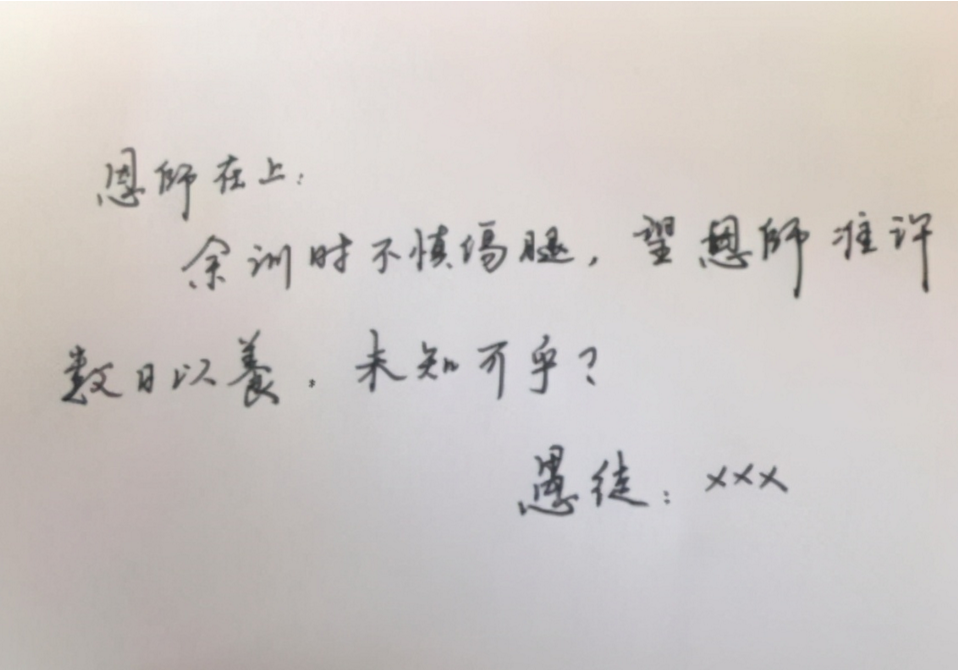 恩師在上：
余训时不慎伤腿，望恩師准许
数日以養，未知可乎？
愚徒：×××